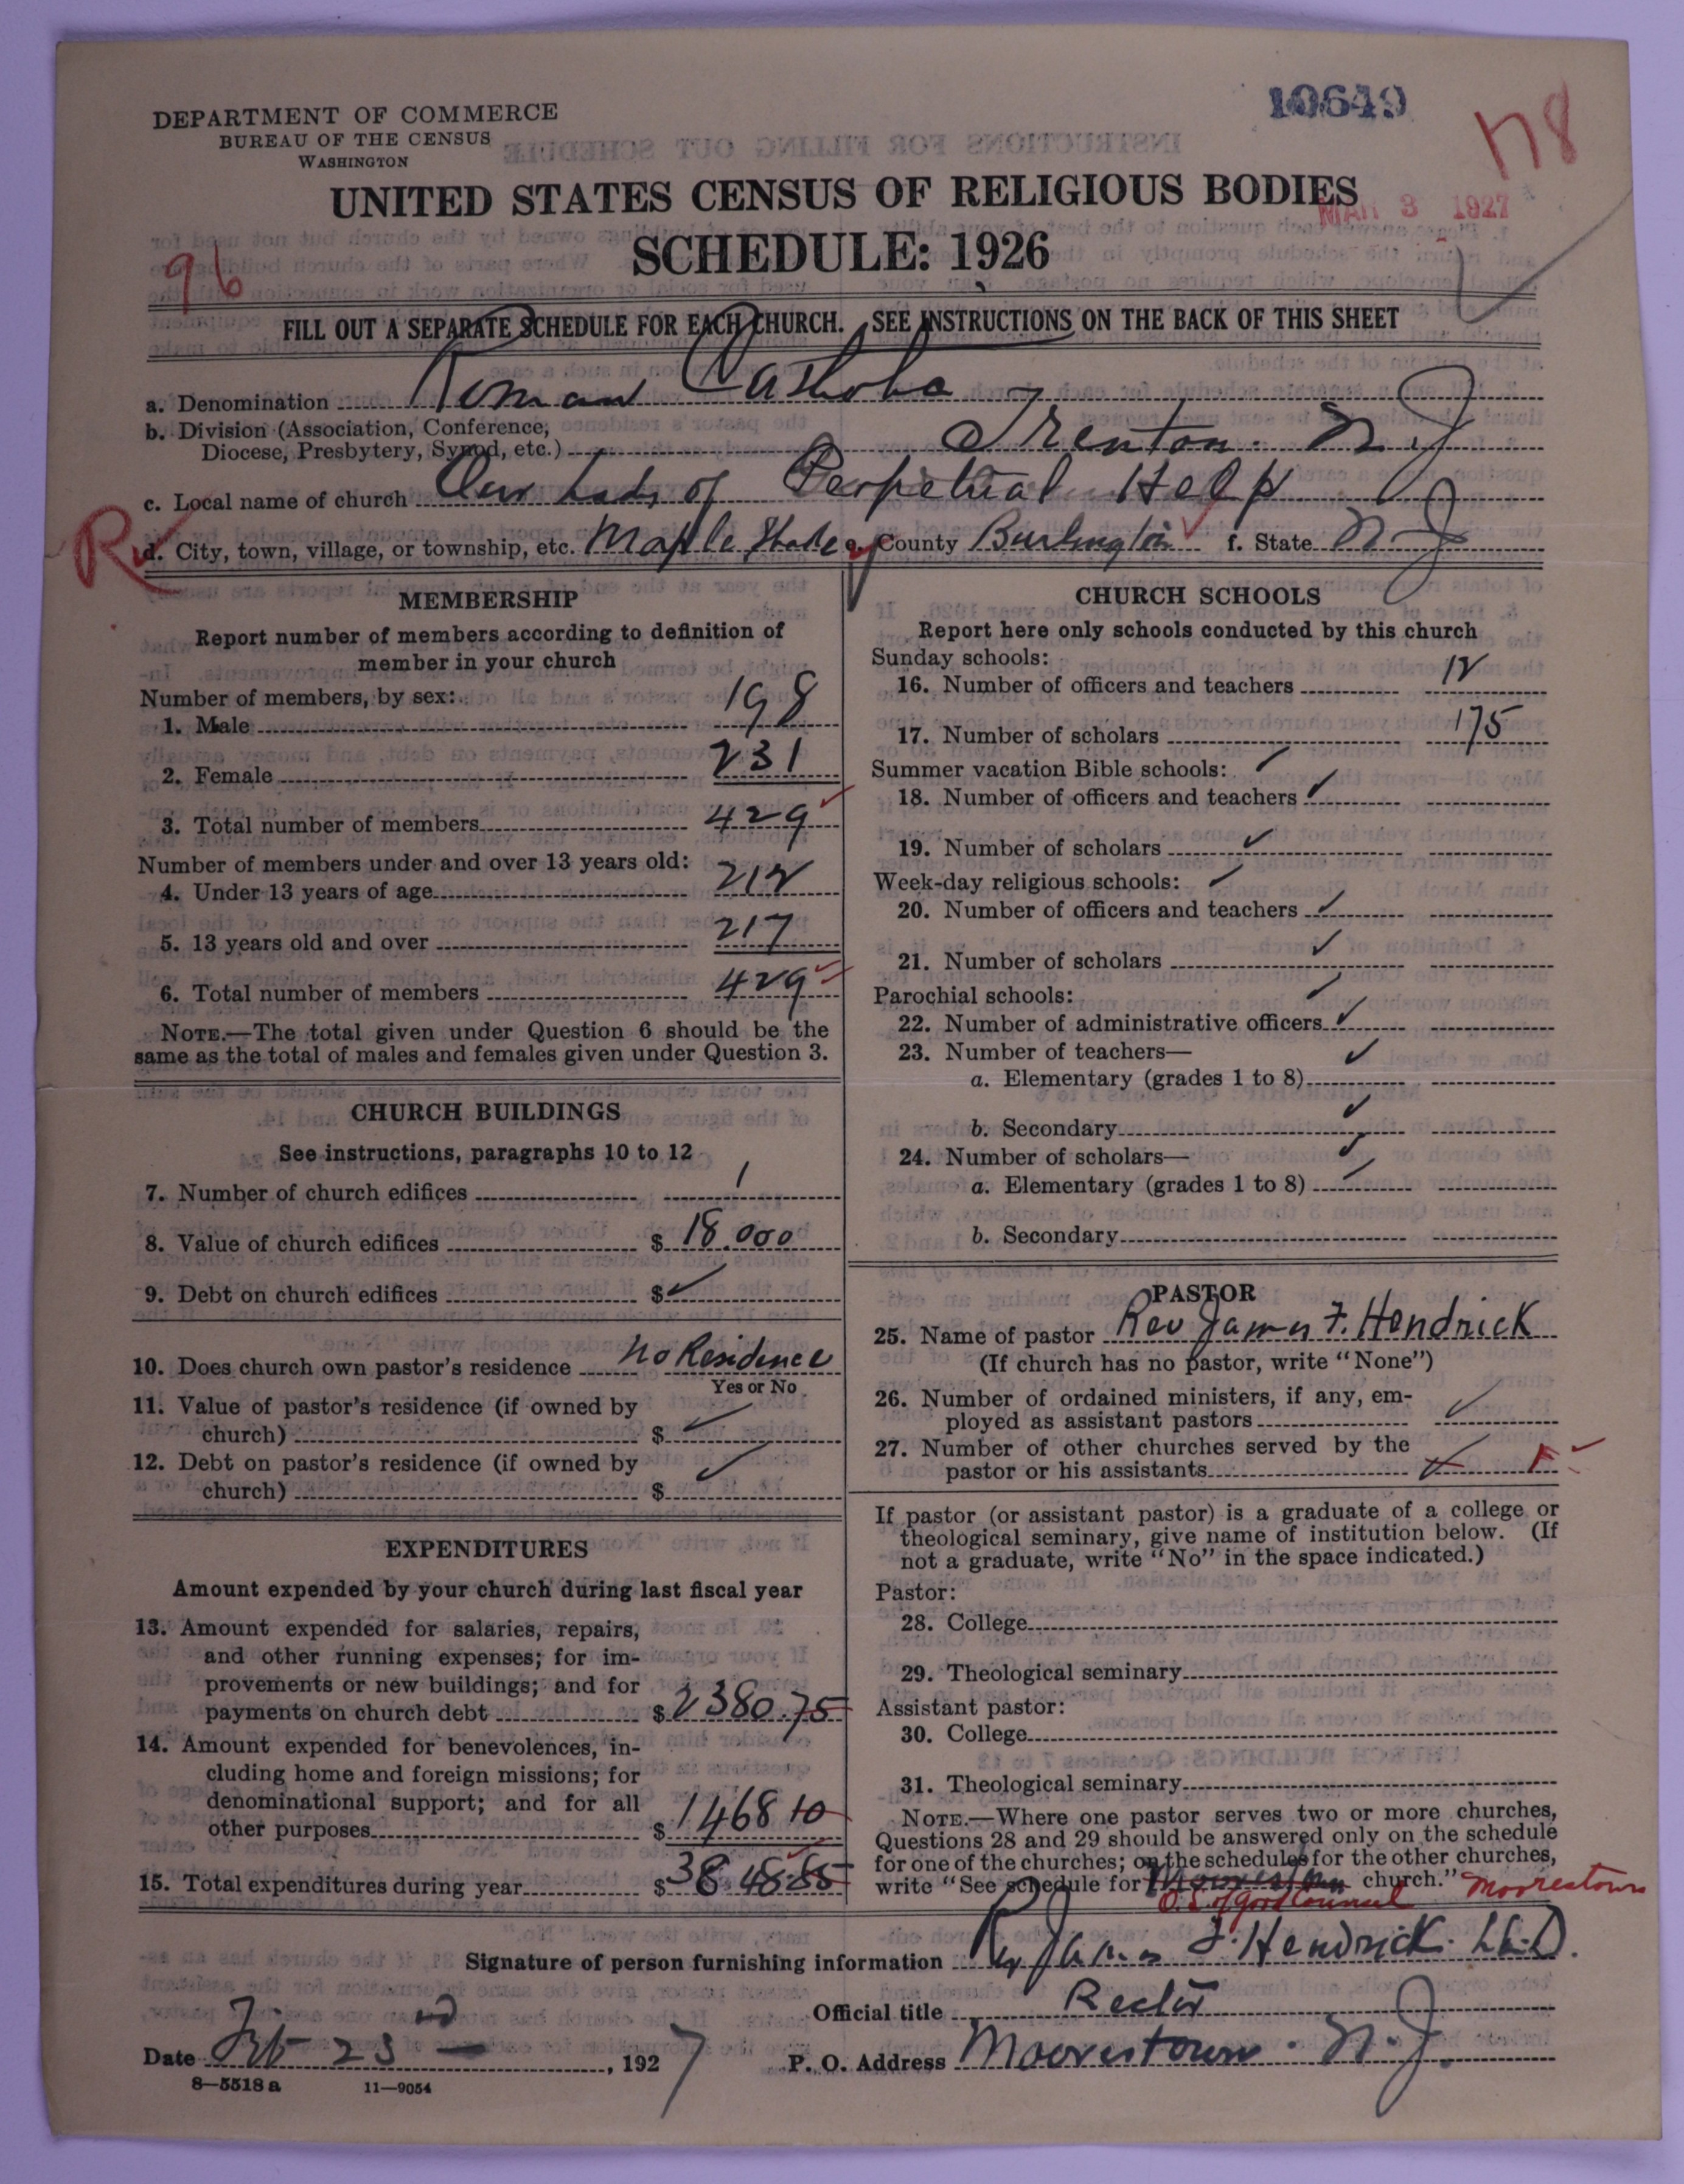 DEPARTMENT OF COMMERCE
BUREAU OF THE CENSUS
WASHINGTON
10649
118
UNITED STATES CENSUS OF RELIGIOUS BODIES
MAR 3 1927
SCHEDULE: 1926
96
FILL OUT A SEPARATE SCHEDULE FOR EACH CHURCH. SEE INSTRUCTIONS ON THE BACK OF THIS SHEET
a. Denomination Roman Catholic
b. Division (Association, Conference,
Diocese, Presbytery, Synod, etc.) Trenton. N J
c. Local name of church Our Lady of Perpetual Help
d. City, town, village, or township, etc. Maple Shade e. County Burlington f. State N J
MEMBERSHIP
Report number of members according to definition of
member in your church
Number of members, by sex:
1. Male 198
2. Female 231
3. Total number of members 429
Number of members under and over 13 years old:
4. Under 13 years of age 212
5. 13 years old and over 217
6. Total number of members 429
NOTE.—The total given under Question 6 should be the
same as the total of males and females given under Question 3.
CHURCH BUILDINGS
See instructions, paragraphs 10 to 12
7. Number of church edifices 1
8. Value of church edifices $ 18.000
9. Debt on church edifices $ ✓
10. Does church own pastor's residence No Residence
Yes or No
11. Value of pastor's residence (if owned by
church) $ ✓
12. Debt on pastor's residence (if owned by
church) $ ✓
EXPENDITURES
Amount expended by your church during last fiscal year
13. Amount expended for salaries, repairs,
and other running expenses; for im-
provements or new buildings; and for
payments on church debt $ 2380.75
14. Amount expended for benevolences, in-
cluding home and foreign missions; for
denominational support; and for all
other purposes $ 1468 10
15. Total expenditures during year $ 3848.85
CHURCH SCHOOLS
Report here only schools conducted by this church
Sunday schools:
16. Number of officers and teachers 12
17. Number of scholars 175
Summer vacation Bible schools: ✓
18. Number of officers and teachers ✓
19. Number of scholars ✓
Week-day religious schools: ✓
20. Number of officers and teachers ✓
21. Number of scholars ✓
Parochial schools: ✓
22. Number of administrative officers ✓
23. Number of teachers— ✓
a. Elementary (grades 1 to 8)
b. Secondary ✓
24. Number of scholars— ✓
a. Elementary (grades 1 to 8) ✓
b. Secondary
PASTOR
25. Name of pastor Rev James F. Hendrick
(If church has no pastor, write "None")
26. Number of ordained ministers, if any, em-
ployed as assistant pastors ✓
27. Number of other churches served by the
pastor or his assistants
If pastor (or assistant pastor) is a graduate of a college or
theological seminary, give name of institution below. (If
not a graduate, write "No" in the space indicated.)
Pastor:
28. College
29. Theological seminary
Assistant pastor:
30. College
31. Theological seminary
NOTE.—Where one pastor serves two or more churches,
Questions 28 and 29 should be answered only on the schedule
for one of the churches; on the schedules for the other churches,
write "See schedule for Moorestown church." Moorestown
O. L. of Good Counsel
Signature of person furnishing information Rev James F. Hendrick. LL.D.
Official title Rector
Date Feb 23 rd, 1927 P. O. Address Moorestown. N.J.
8—5518 a 11—9054